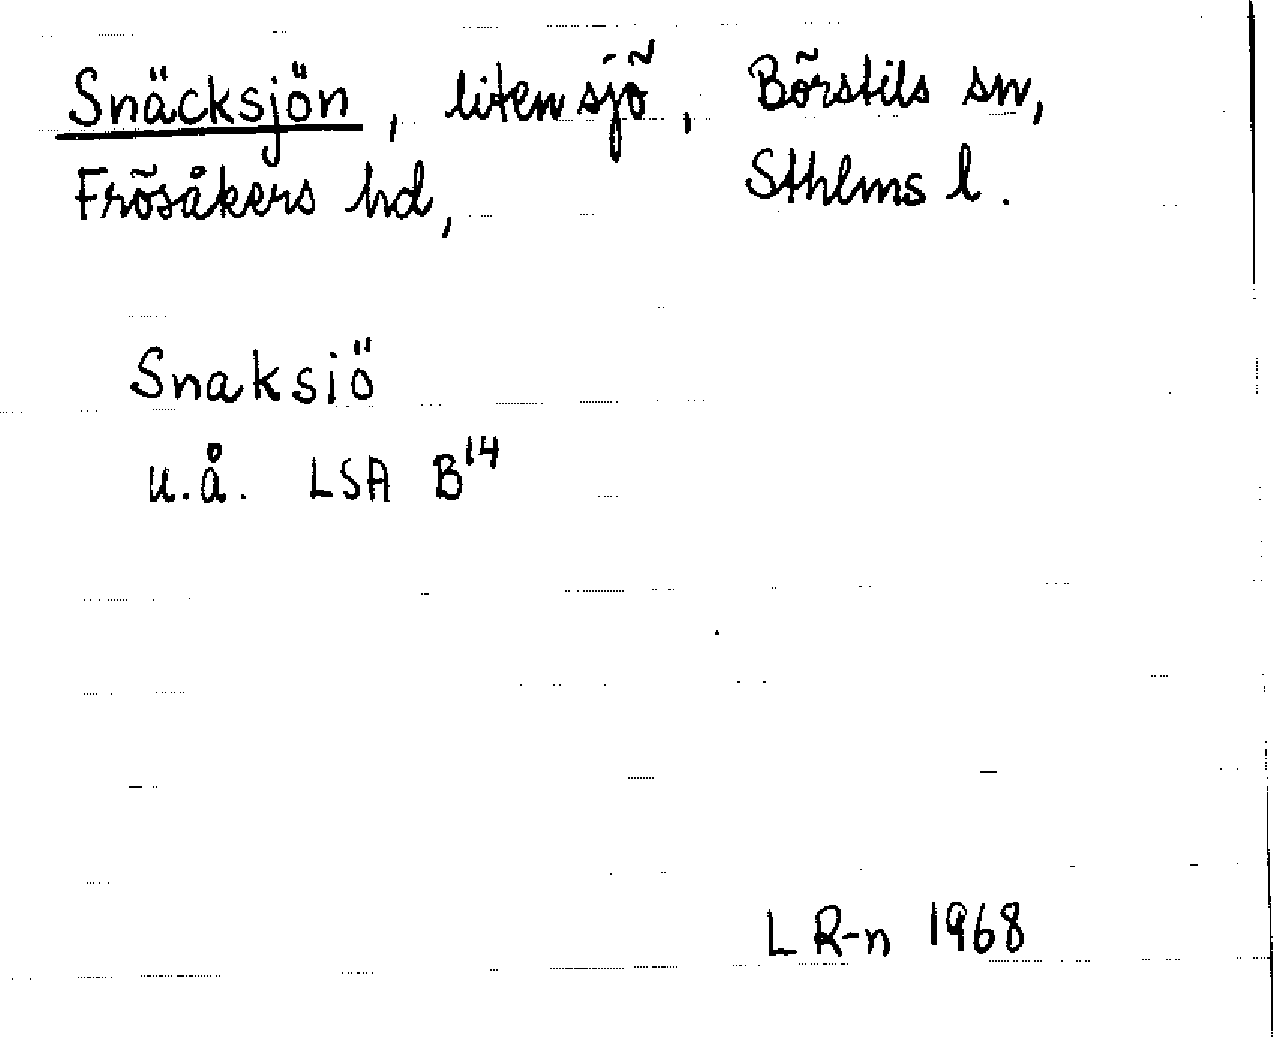 Snäcksjön, liten sjö, Börstils sn,
Frösåkers hd, Sthlms l.
Snaksiö
u.å. LSA B14
L R-n 1968